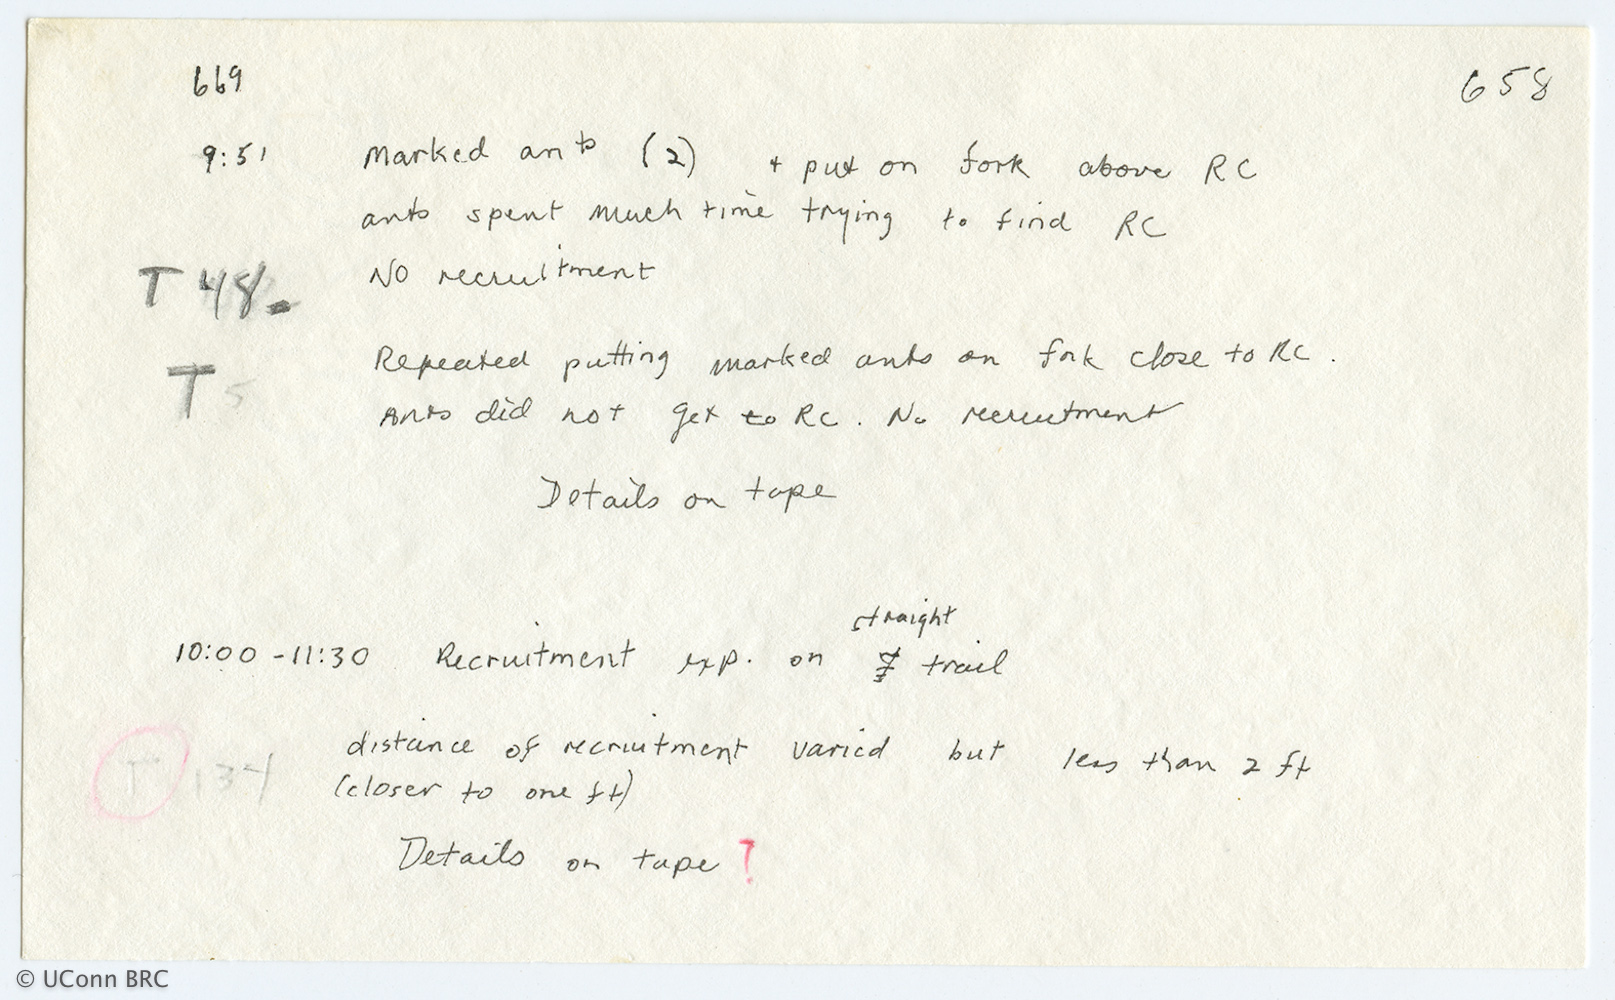 669
658
9:51 Marked ants (2) + put on fork above RC
ants spent much time trying to find RC
T 48 No recruitment
Repeated putting marked ants on fork close to RC.
T 5 Ants did not get to RC. No recruitment
Details on tape
straight
10:00 - 11:30 Recruitment exp. on trail
distance of recruitment varied but less than 2 ft
T 134 (closer to one ft)
Details on tape ?
© UConn BRC